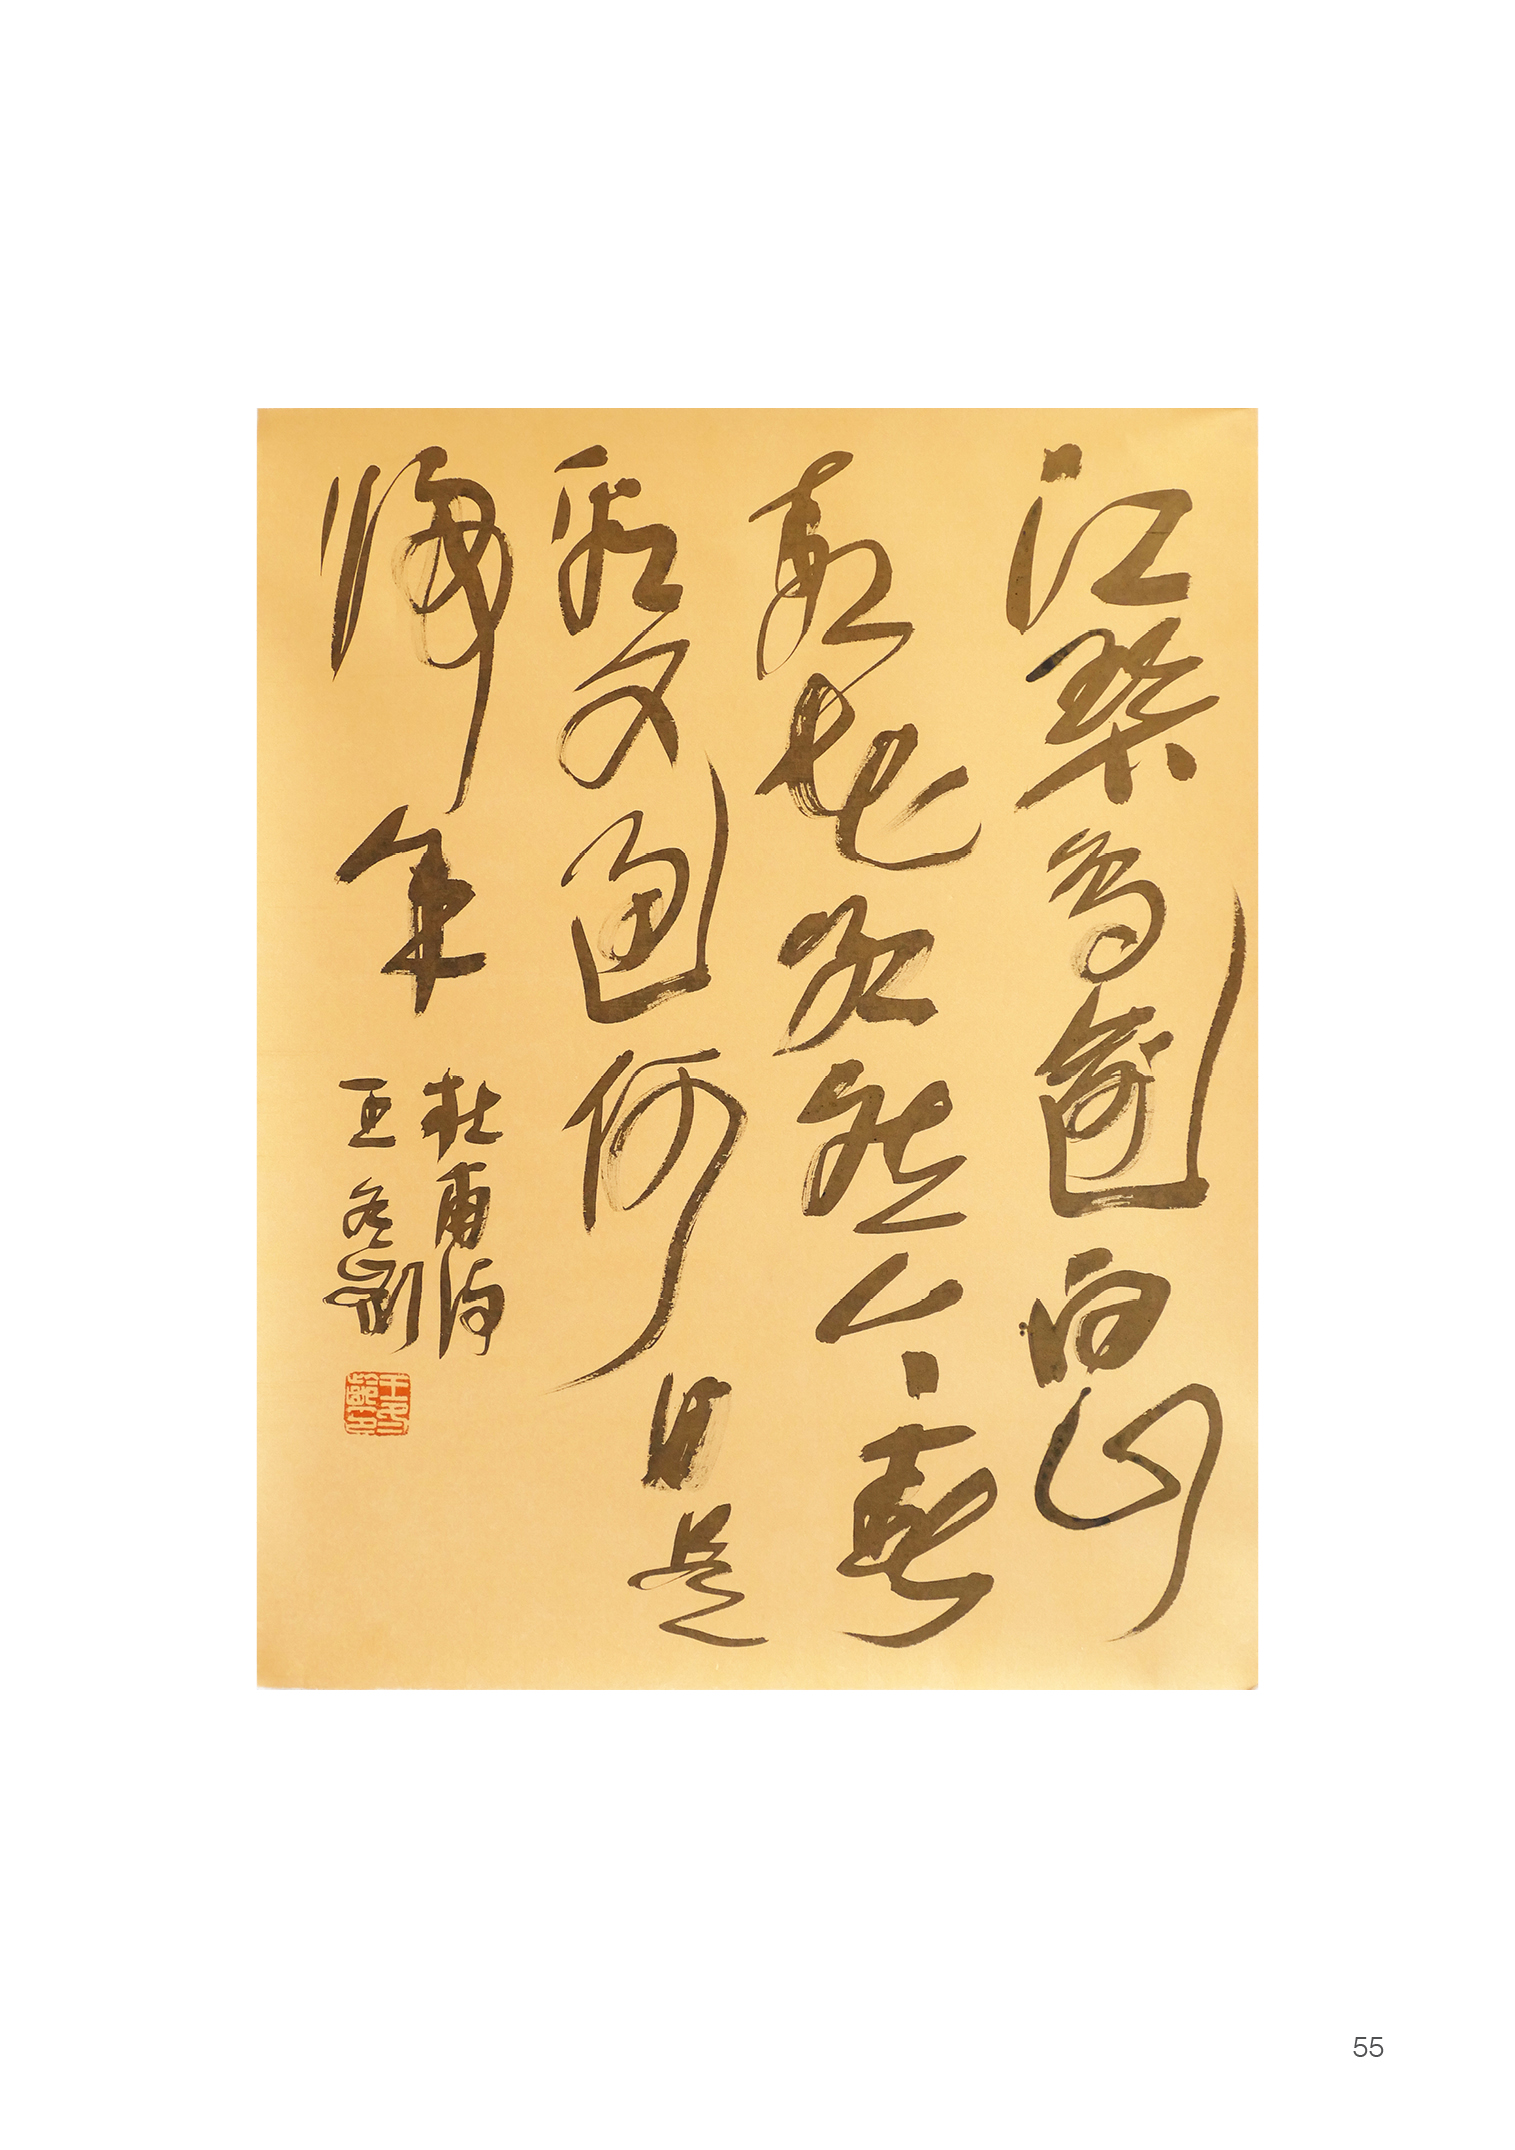 江碧鳥逾白山
青花欲然今春
看又過何日是
歸年
杜甫詩
王冬齡
王冬齡印
55